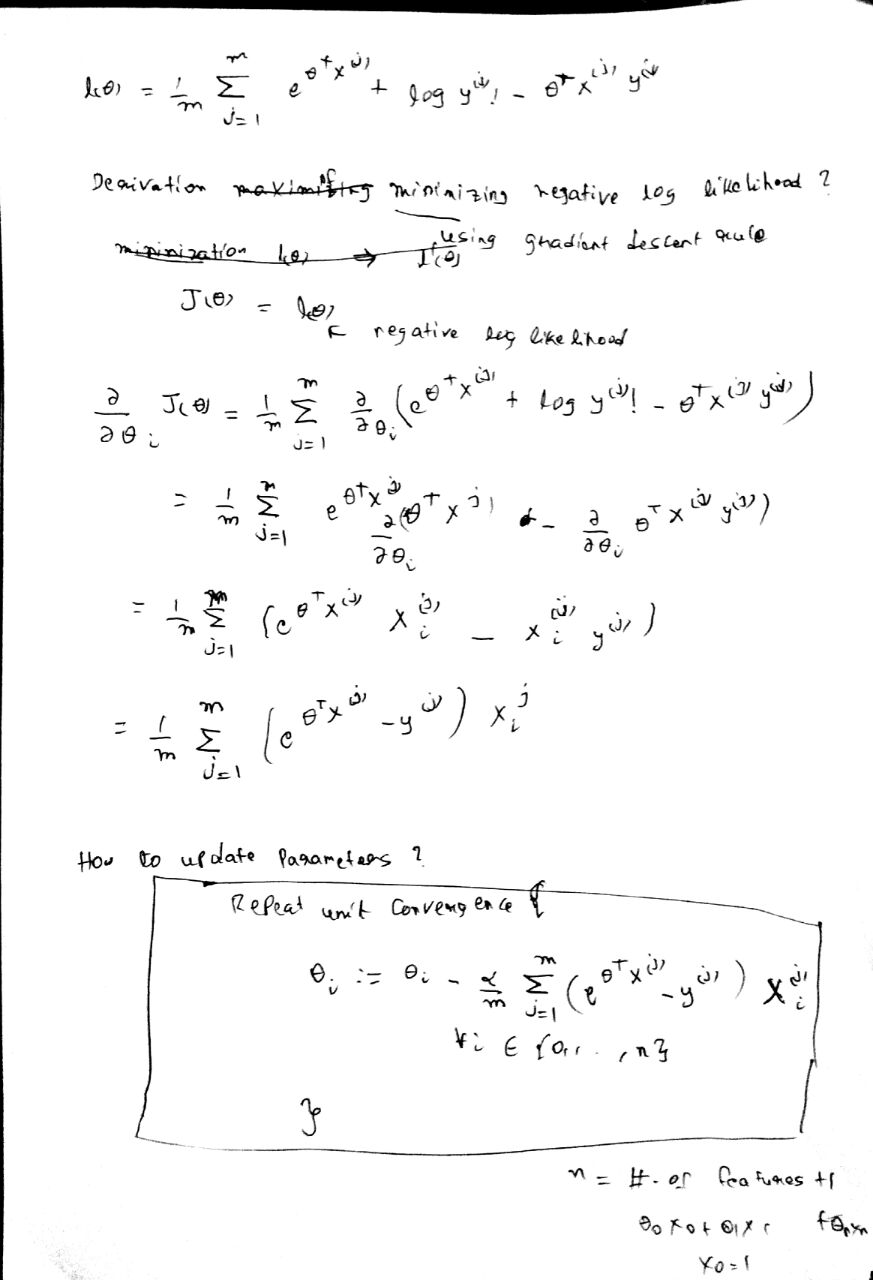 l(θ) = 1/m Σ_{j=1}^{m} e^{θ^T x^{(j)}} + log y^{(j)}! - θ^T x^{(j)} y^{(j)}
Derivation of minimizing negative log likelihood ?
using gradient descent rule
J(θ) = l(θ)
negative log likelihood
∂/∂θ_i J(θ) = 1/m Σ_{j=1}^{m} ∂/∂θ_i (e^{θ^T x^{(j)}} + log y^{(j)}! - θ^T x^{(j)} y^{(j)})
= 1/m Σ_{j=1}^{m} e^{θ^T x^{(j)}} ∂/∂θ_i (θ^T x^{j)} - ∂/∂θ_i θ^T x^{(j)} y^{(j)})
= 1/m Σ_{j=1}^{m} (e^{θ^T x^{(j)}} x_i^{(j)} - x_i^{(j)} y^{(j)})
= 1/m Σ_{j=1}^{m} (e^{θ^T x^{(j)}} - y^{(j)}) x_i^j
How to update Parameters ?
Repeat unit Convergence {
θ_i := θ_i - α/m Σ_{j=1}^{m} (e^{θ^T x^{(j)}} - y^{(j)}) x_i^{(j)}
∀i ∈ {0,..., n}
}
n = #. of features +1
θ0 x0 + θ1 x1 + θn xn
x0 = 1